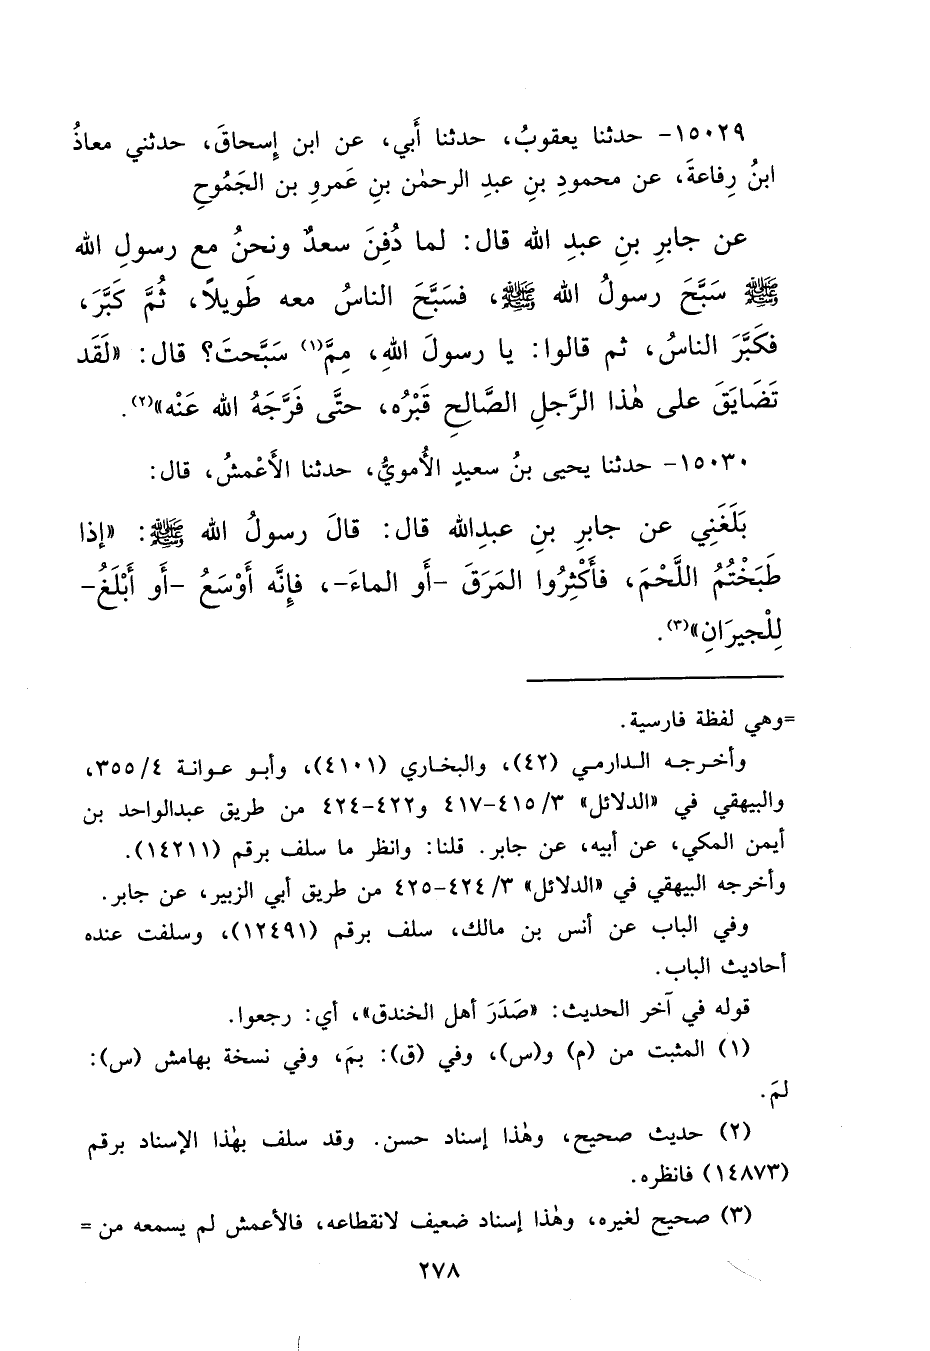 ١٥٠٢٩- حدثنا يعقوبُ، حدثنا أَبي، عن ابن إِسحاقَ، حدثني معاذُ
ابنُ رِفاعةَ، عن محمودِ بنِ عبدِ الرحمٰن بنِ عَمرِو بن الجَمُوحِ
عن جابرِ بنِ عبدِ الله قال: لما دُفِنَ سعدٌ ونحنُ مع رسولِ الله
ﷺ سَبَّحَ رسولُ الله ﷺ، فسَبَّحَ الناسُ معه طَويلاً، ثُمَّ كَبَّرَ،
فكَبَّرَ الناسُ، ثم قالوا: يا رسولَ اللهِ، مِمَّ(١) سَبَّحتَ؟ قال: «لَقَد
تَضَايَقَ على هٰذا الرَّجلِ الصَّالحِ قَبْرُه، حتَّى فَرَّجَهُ الله عَنْه»(٢).
١٥٠٣٠- حدثنا يحيى بنُ سعيدٍ الأُمويُّ، حدثنا الأَعْمشُ، قال:
بَلَغَنِي عن جابرِ بنِ عبدِالله قال: قالَ رسولُ الله ﷺ: «إذا
طَبَخْتُمُ اللَّحْمَ، فأَكْثِرُوا المَرَقَ -أَو الماءَ-، فإِنَّه أَوْسَعُ -أَو أَبْلَغُ-
لِلْجيرَانِ»(٣).
=وهي لفظة فارسية.
وأخرجه الدارمي (٤٢)، والبخاري (٤١٠١)، وأبو عوانة ٣٥٥/٤،
والبيهقي في «الدلائل» ٤١٥/٣-٤١٧ و٤٢٢-٤٢٤ من طريق عبدالواحد بن
أيمن المكي، عن أبيه، عن جابر. قلنا: وانظر ما سلف برقم (١٤٢١١).
وأخرجه البيهقي في «الدلائل» ٤٢٤/٣-٤٢٥ من طريق أبي الزبير، عن جابر.
وفي الباب عن أنس بن مالك، سلف برقم (١٢٤٩١)، وسلفت عنده
أحاديث الباب.
قوله في آخر الحديث: «صَدَرَ أهل الخندق»، أي: رجعوا.
(١) المثبت من (م) و(س)، وفي (ق): بمَ، وفي نسخة بهامش (س):
لمَ.
(٢) حديث صحيح، وهٰذا إسناد حسن. وقد سلف بهٰذا الإسناد برقم
(١٤٨٧٣) فانظره.
(٣) صحيح لغيره، وهٰذا إسناد ضعيف لانقطاعه، فالأعمش لم يسمعه من =
٢٧٨